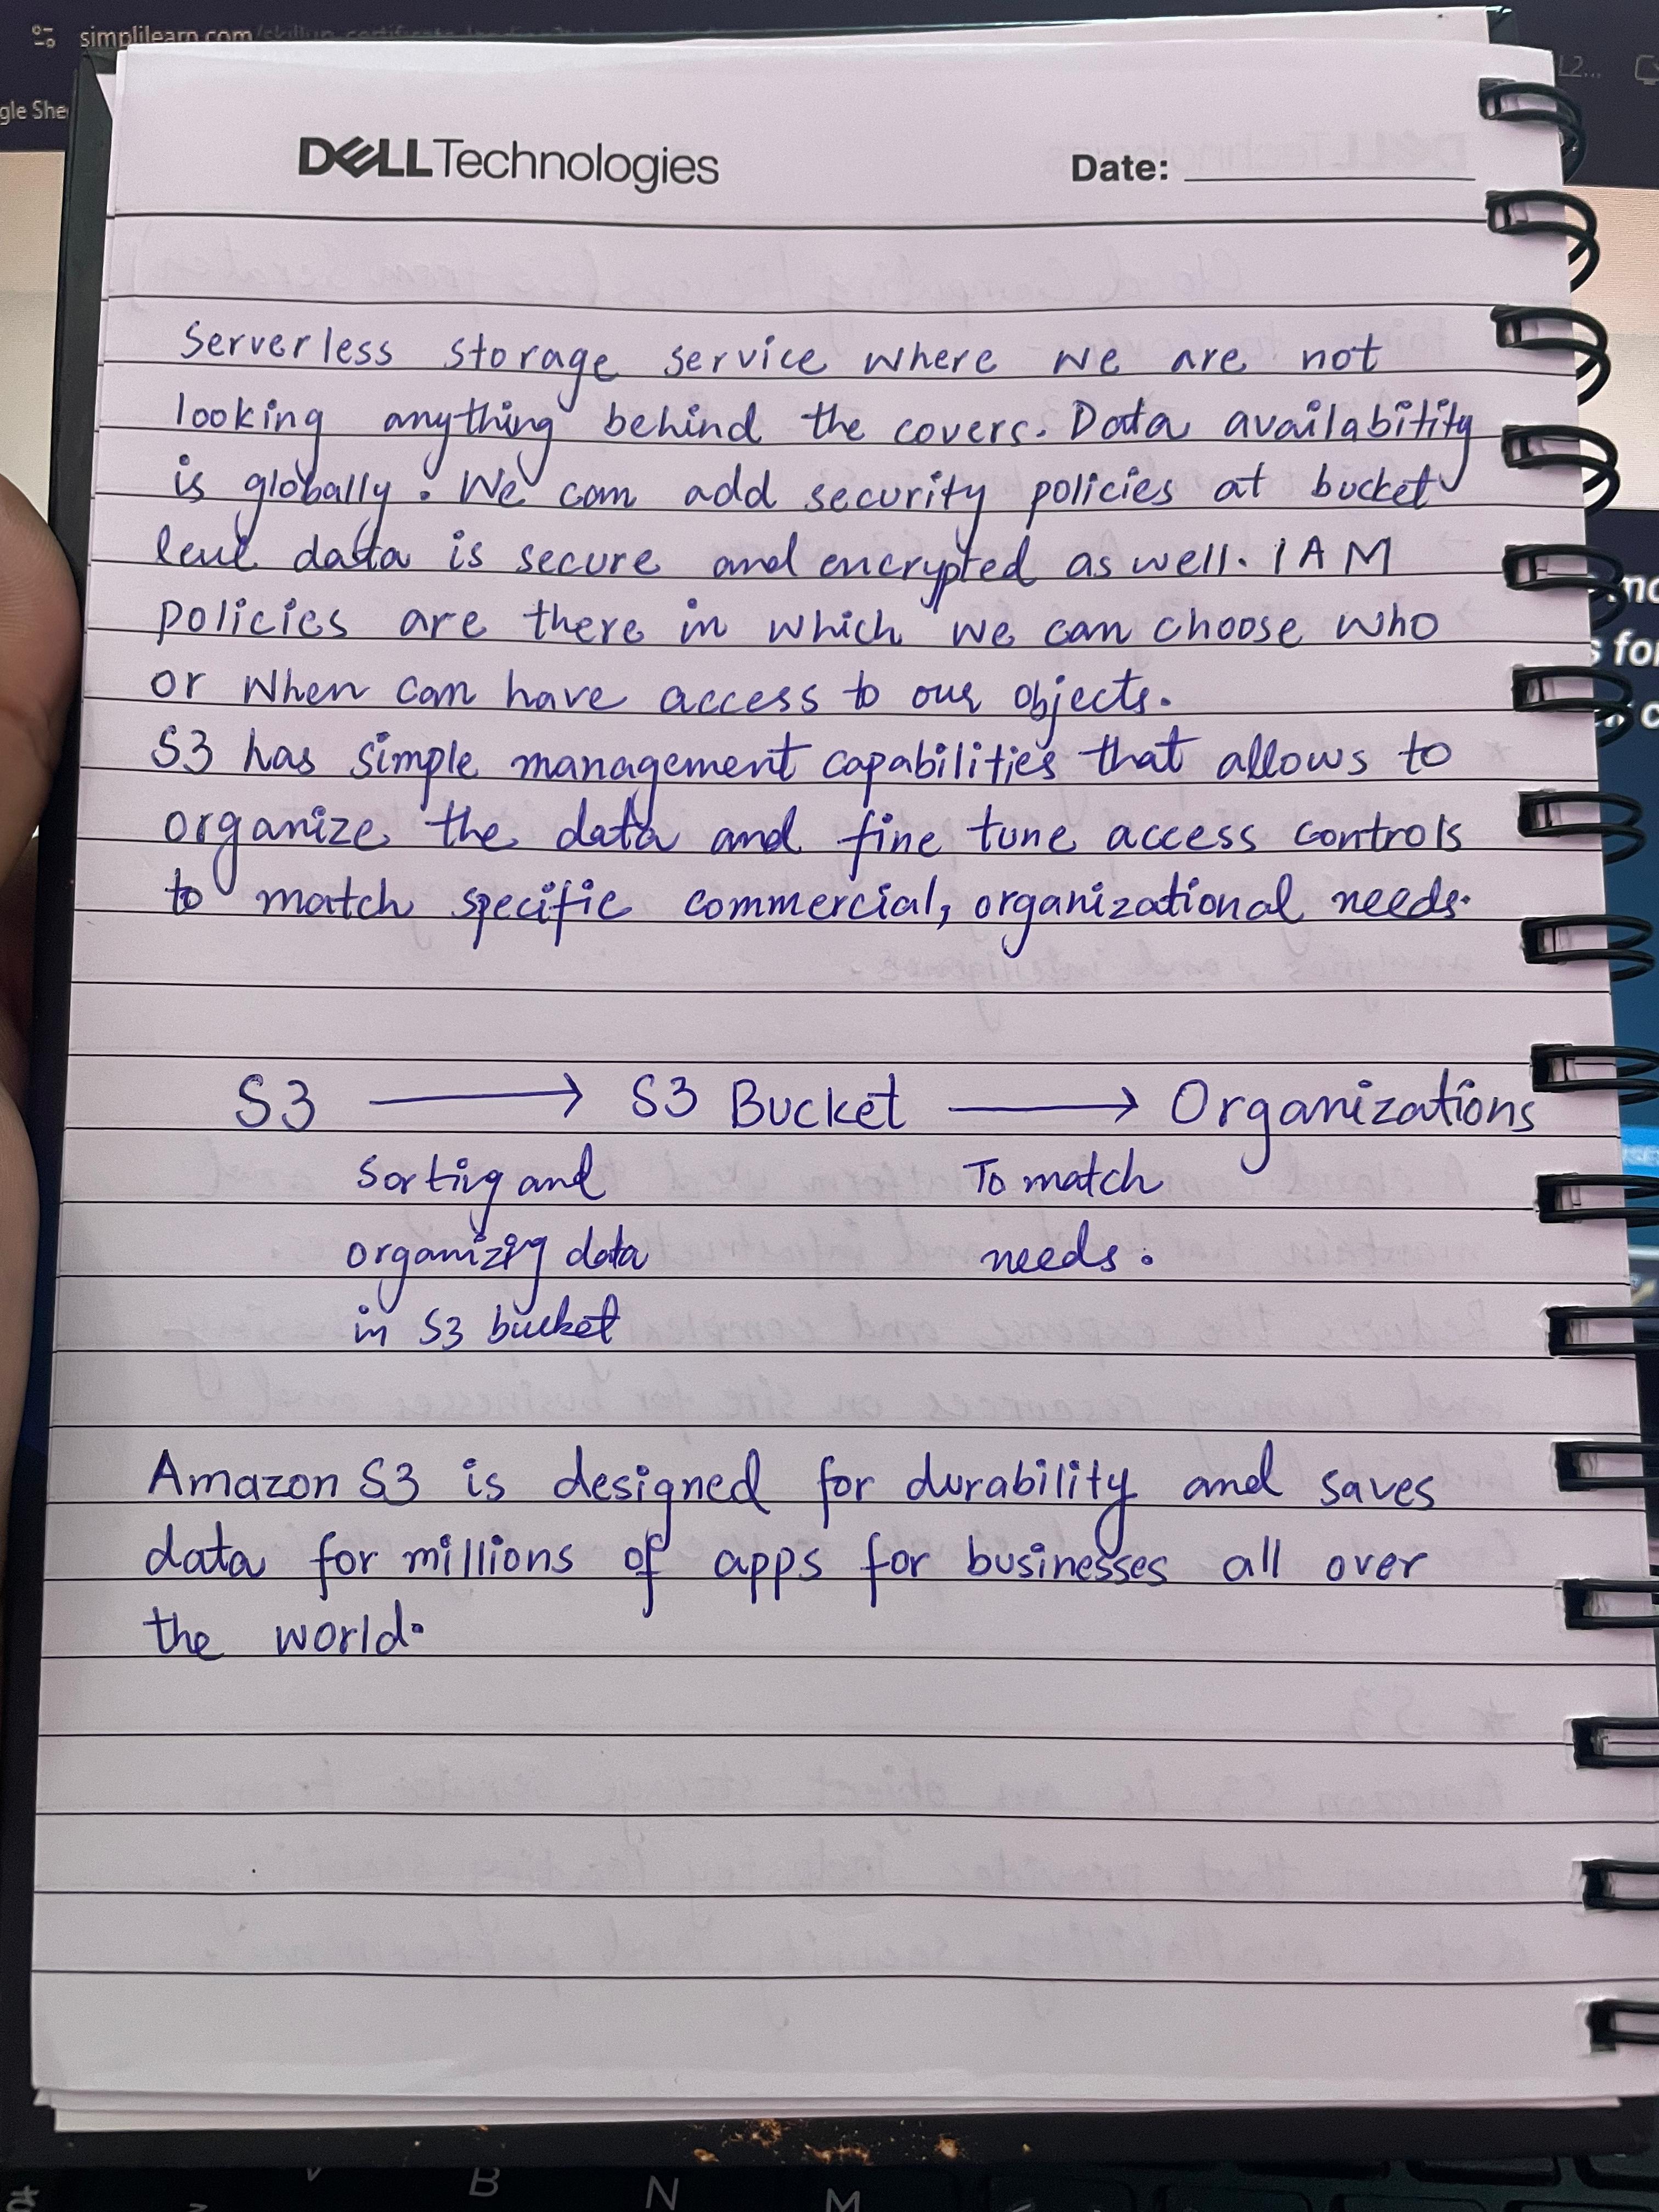 simplilearn.com/skillup-certificate-landing
gle She
L2...
DELL Technologies
Date:
Serverless storage service where we are not
looking anything behind the covers. Data availabitity
is globally. We can add security policies at bucket
level data is secure and encrypted as well. IAM
policies are there in which we can choose who
or when can have access to our objects.
S3 has simple management capabilities that allows to
organize the data and fine tune access controls
to match specific commercial, organizational needs.
S3 → S3 Bucket → Organizations
Sorting and To match
organizing data needs.
in S3 bucket
Amazon S3 is designed for durability and saves
data for millions of apps for businesses all over
the world.
B N M